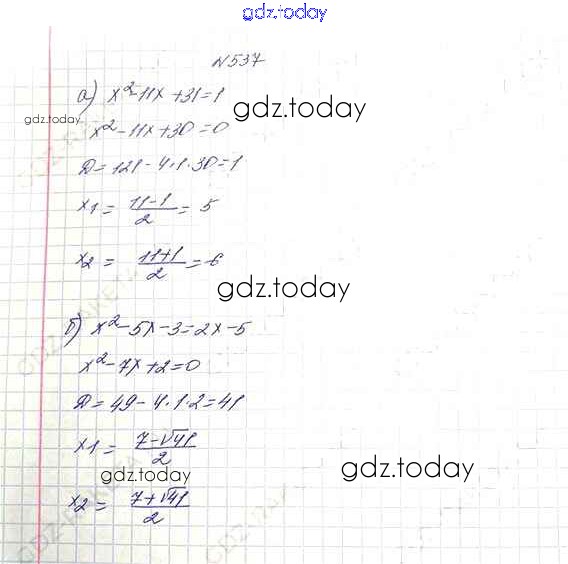 gdz.today
N537
а) x²-11x+31=1
gdz.today
gdz.today
x²-11x+30=0
Д=121-4·1·30=1
x1 = 11-1/2 = 5
x2 = 11+1/2 = 6
gdz.today
б) x²-5x-3=2x-5
x²-7x+2=0
Д=49-4·1·2=41
x1 = 7-√41/2
gdz.today
gdz.today
x2 = 7+√41/2